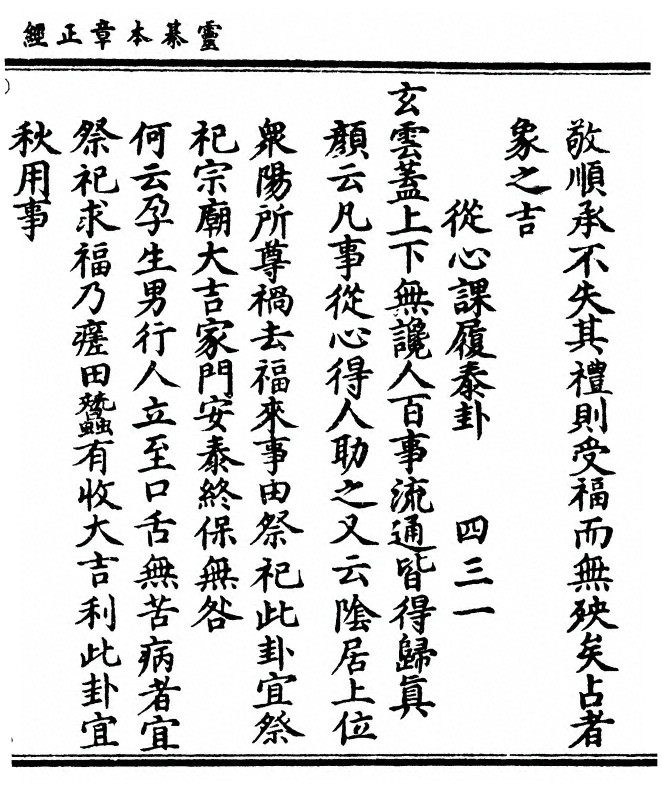 靈棊本章正經
敬順承不失其禮則受福而無殃矣占者
象之吉
從心課履泰卦 四三一
玄雲蓋上下無讒人百事流通皆得歸眞
顏云凡事從心得人助之又云陰居上位
衆陽所尊禍去福來事由祭祀此卦宜祭
祀宗廟大吉家門安泰終保無咎
何云孕生男行人立至口舌無苦病者宜
祭祀求福乃瘥田蠶有收大吉利此卦宜
秋用事